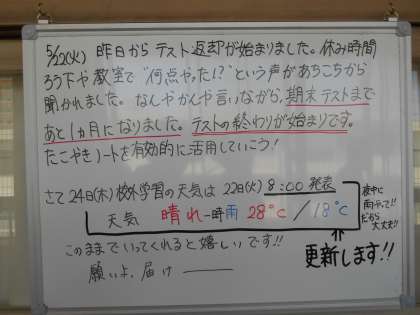 5/22(火) 昨日から テスト返却が始まりました。休み時間
ろう下や教室で "何点やった!?" という声があちこちから
聞かれました。なんやかんや言いながら、期末テストまで
あと1カ月になりました。テストの終わりが始まりです。
たこやきノートを有効的に活用していこう!
さて24日(木)校外学習の天気は 22日(火) 8:00 発表
天気 晴れ一時雨 28°c / 18°c
夜中に
雨やって!!
だから
大丈夫!!
このままでいってくれると嬉しいです!!
⇑
更新します!!
願いよ、届け ―――